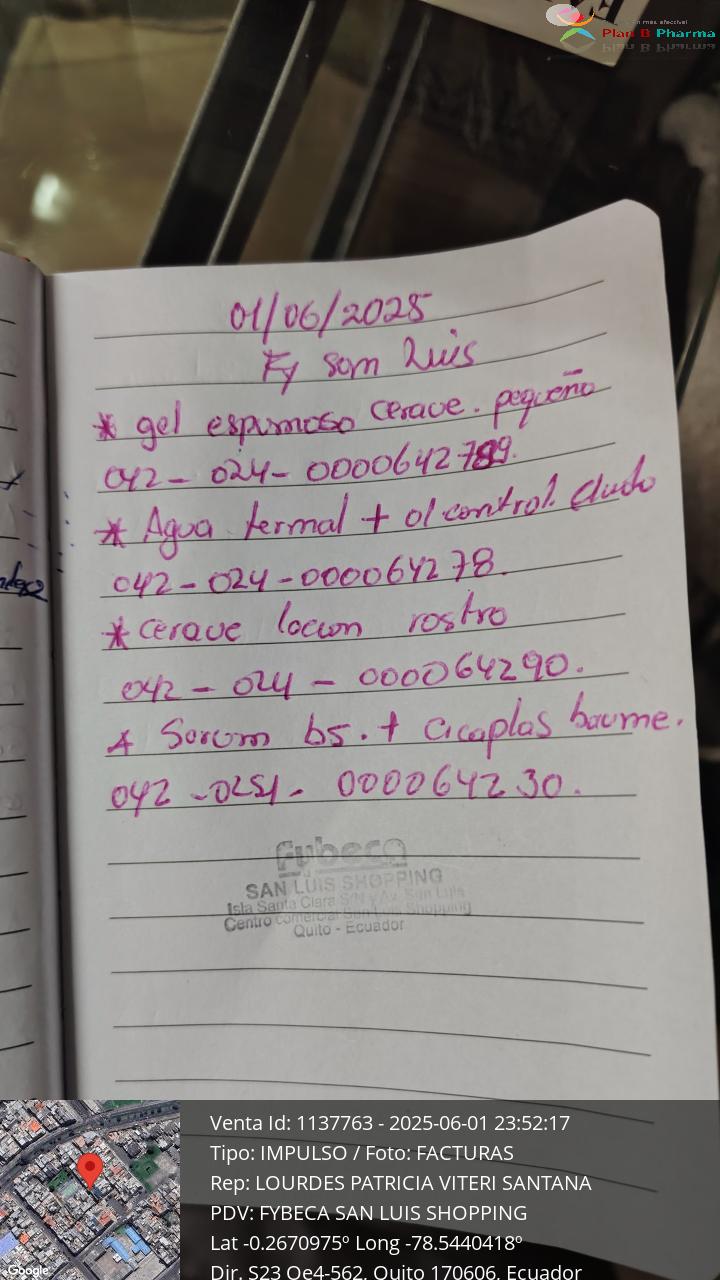 Plan B Pharma
01/06/2025
Fy San Luis
* gel espumoso cerave. pequeño
042 - 024 - 0000642789.
* Agua termal + ol control.
042 - 024 - 000064278.
* cerave locion rostro
042 - 024 - 000064290.
* Serum b5. + cicaplas baume.
042 - 0251 - 000064230.
Fybeca
SAN LUIS SHOPPING
Isla Santa Clara S/N y Av. San Luis
Centro Comercial San Luis Shopping
Quito - Ecuador
Venta Id: 1137763 - 2025-06-01 23:52:17
Tipo: IMPULSO / Foto: FACTURAS
Rep: LOURDES PATRICIA VITERI SANTANA
PDV: FYBECA SAN LUIS SHOPPING
Lat -0.2670975º Long -78.5440418º
Dir. S23 Oe4-562, Quito 170606, Ecuador
Google